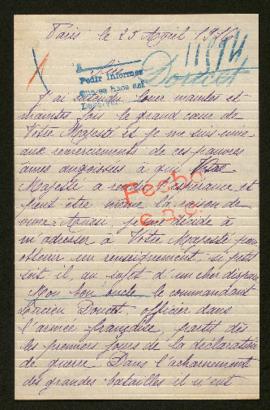 Paris le 23 Avril 1916
11894
Doucet
Pedir informes
J'ai entendu louer maintes et
maintes fois le grand cœur de
Votre Majesté et je me suis unie
aux remerciements de ces pauvres
âmes angoissées à qui Votre
Majesté a l'espérance et
peut être même la raison de
vivre. Aussi je me décide à
m'adresser à Votre Majesté pour
obtenir un renseignement si petit
soit il au sujet d'un cher disparu
Mon bon oncle le commandant
Lucien Doucet officier dans
l'armée française, partit dès
les premiers jours de la déclaration
de guerre. Dans l'acharnement
des grandes batailles il n'eut
Fecho